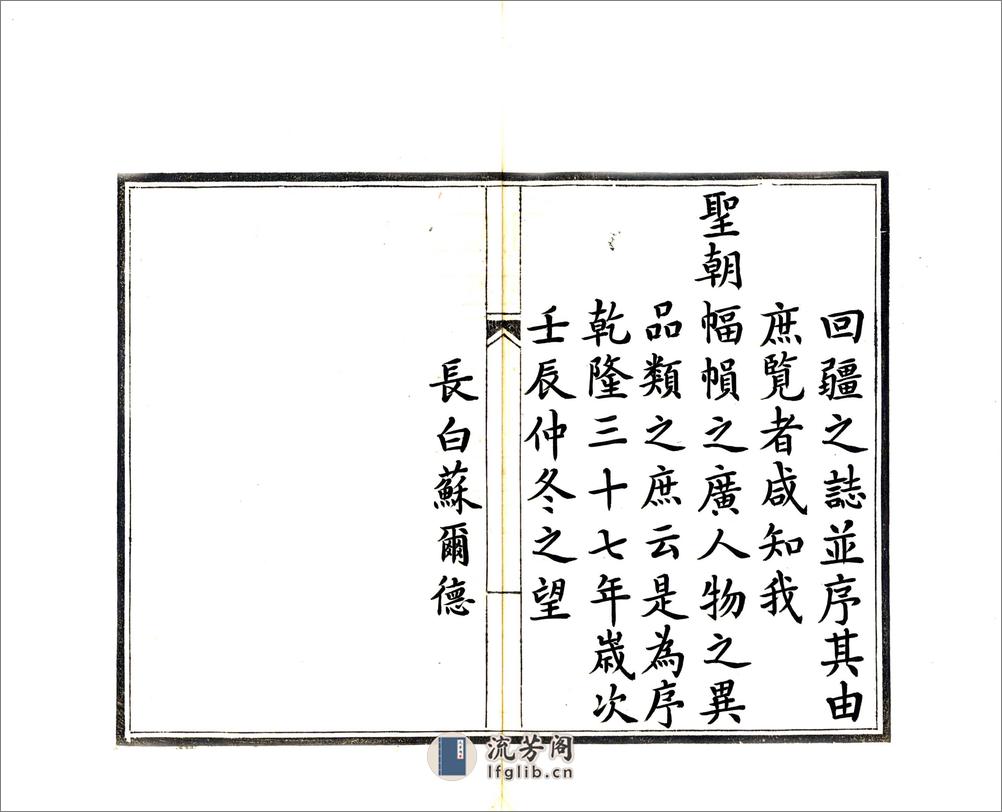 回疆之誌並序其由
庶覧者咸知我
聖朝幅幀之廣人物之異
品類之庶云是為序
乾隆三十七年嵗次
壬辰仲冬之望
長白蘇爾德
流芳阁
lfglib.cn